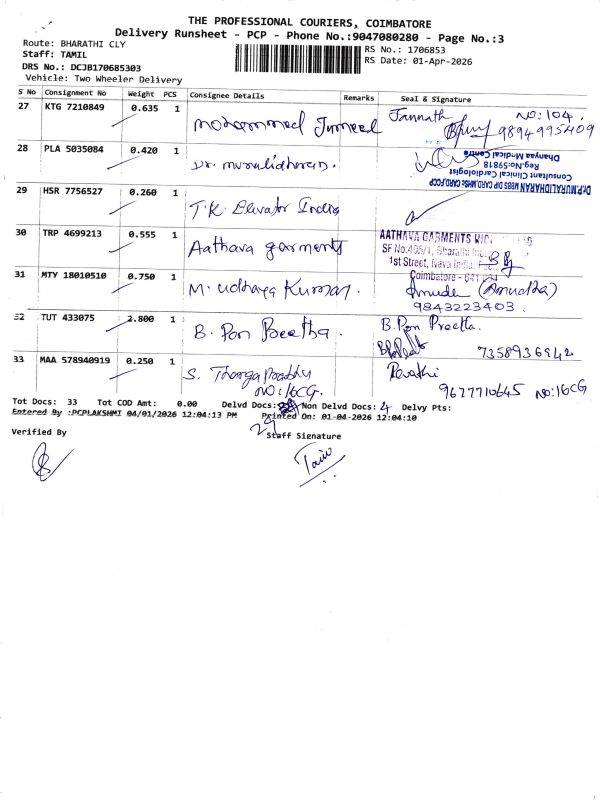 THE PROFESSIONAL COURIERS, COIMBATORE
Delivery Runsheet - PCP - Phone No.:9047080280 - Page No.:3
Route: BHARATHI CLY
RS No.: 1706853
Staff: TAMIL
RS Date: 01-Apr-2026
DRS No.: DCJB170685303
Vehicle: Two Wheeler Delivery
S No Consignment No Weight PCS Consignee Details Remarks Seal & Signature
27 KTG 7210849 0.635 1 Mohammed Jameel Jannath NO:104.
9894995409
28 PLA 5035084 0.420 1 Dr. Muralidharan.
Dr.P.MURALIDHARAN MBBS DIP.CARD.MHSC CARD.FCCP
Consultant Clinical Cardiologist
Reg.No:59818
Dhanyaa Medical Centre
29 HSR 7756527 0.260 1 T.K. Elevator India
30 TRP 4699213 0.555 1 Aathava garments
AATHAVA GARMENTS
SF No.405/1, Bharathi
1st Street, Nava India,
Coimbatore - 641
31 MTY 18010510 0.750 1 M. Udhaya Kumar. (Amudha)
9843223403.
32 TUT 433075 2.800 1 B. Pon Preetha. B. Pon Preetha.
7358936942
33 MAA 578940919 0.250 1 S. Thangaprabhu Revathi
NO:16CG. 9677710645 NO:16CG
Tot Docs: 33 Tot COD Amt: 0.00 Delvd Docs: Non Delvd Docs: 4 Delvy Pts:
29
Entered By :PCPLAKSHMI 04/01/2026 12:04:13 PM Printed On: 01-04-2026 12:04:10
Verified By Staff Signature